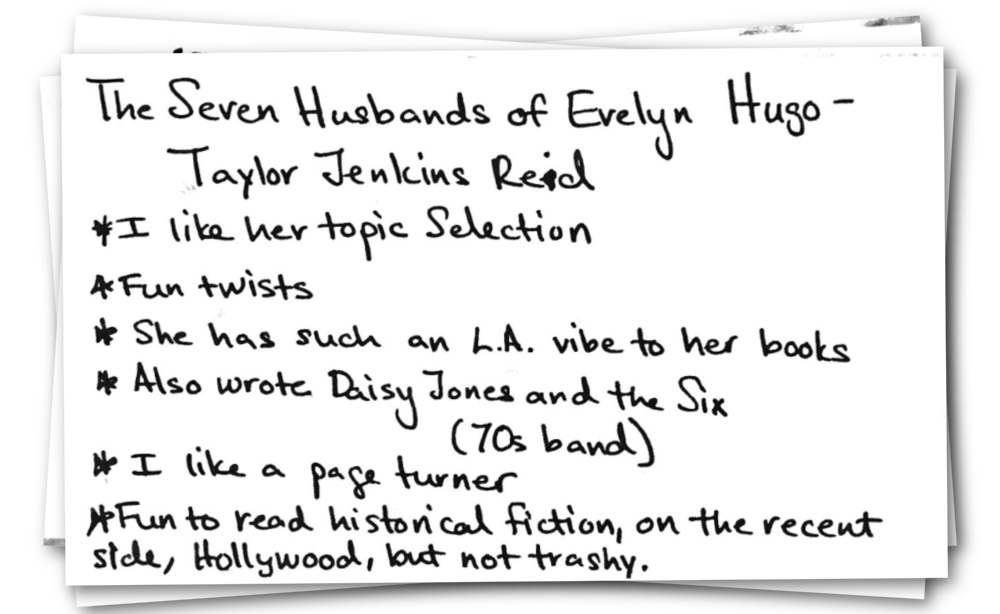 The Seven Husbands of Evelyn Hugo -
Taylor Jenkins Reid
*I like her topic Selection
*Fun twists
* She has such an L.A. vibe to her books
* Also wrote Daisy Jones and the Six
(70s band)
* I like a page turner
*Fun to read historical fiction, on the recent
side, Hollywood, but not trashy.